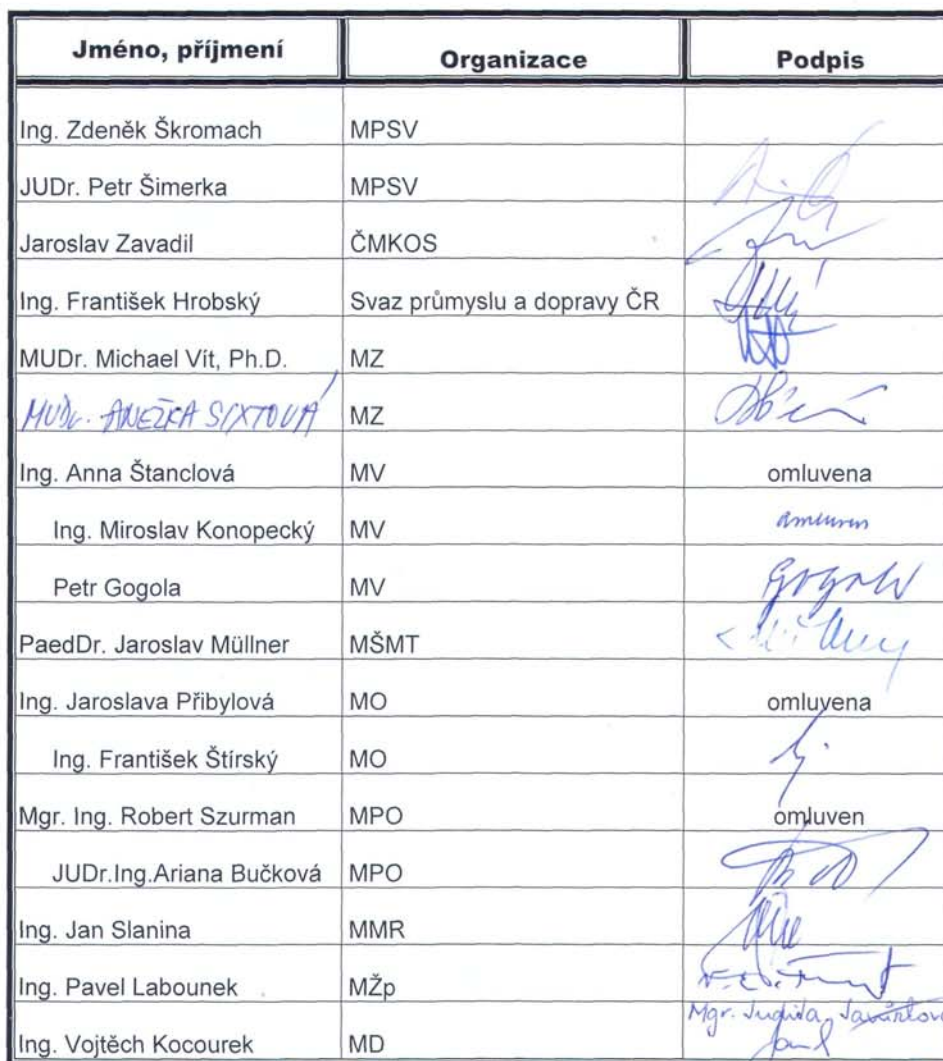 Jméno, příjmení Organizace Podpis
Ing. Zdeněk Škromach MPSV
JUDr. Petr Šimerka MPSV
Jaroslav Zavadil ČMKOS
Ing. František Hrobský Svaz průmyslu a dopravy ČR
MUDr. Michael Vít, Ph.D. MZ
MUDr. ANEŽKA SIXTOVÁ MZ
Ing. Anna Štanclová MV omluvena
Ing. Miroslav Konopecký MV omluven
Petr Gogola MV Gogola
PaedDr. Jaroslav Müllner MŠMT
Ing. Jaroslava Přibylová MO omluvena
Ing. František Štírský MO
Mgr. Ing. Robert Szurman MPO omluven
JUDr.Ing.Ariana Bučková MPO
Ing. Jan Slanina MMR
Ing. Pavel Labounek MŽp
Mgr. Judita
Ing. Vojtěch Kocourek MD